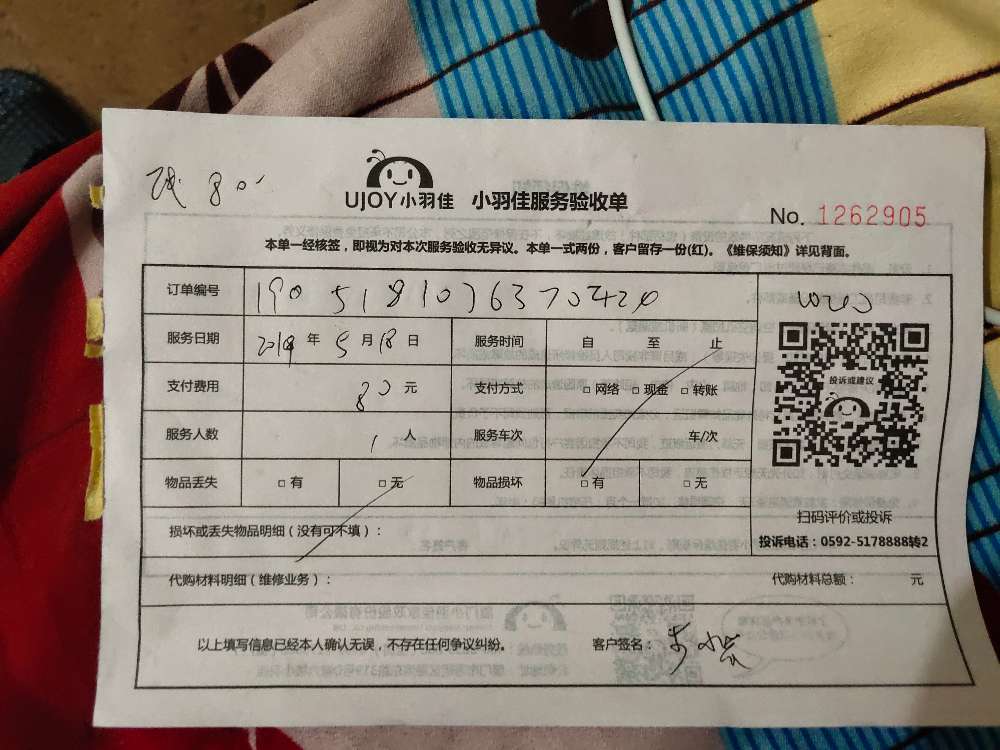 80
UJOY小羽佳 小羽佳服务验收单
No. 1262905
本单一经核签，即视为对本次服务验收无异议。本单一式两份，客户留存一份(红)。《维保须知》详见背面。
订单编号
服务日期 年 5 月 18 日 服务时间 自 至 止
支付费用 80 元 支付方式 □ 网络 □ 现金 □ 转账
投诉或建议
服务人数 1 人 服务车次 车/次
物品丢失 □ 有 □ 无 物品损坏 □ 有 □ 无
扫码评价或投诉
损坏或丢失物品明细（没有可不填）：
投诉电话：0592-5178888转2
代购材料明细（维修业务）： 代购材料总额： 元
以上填写信息已经本人确认无误，不存在任何争议纠纷。 客户签名：